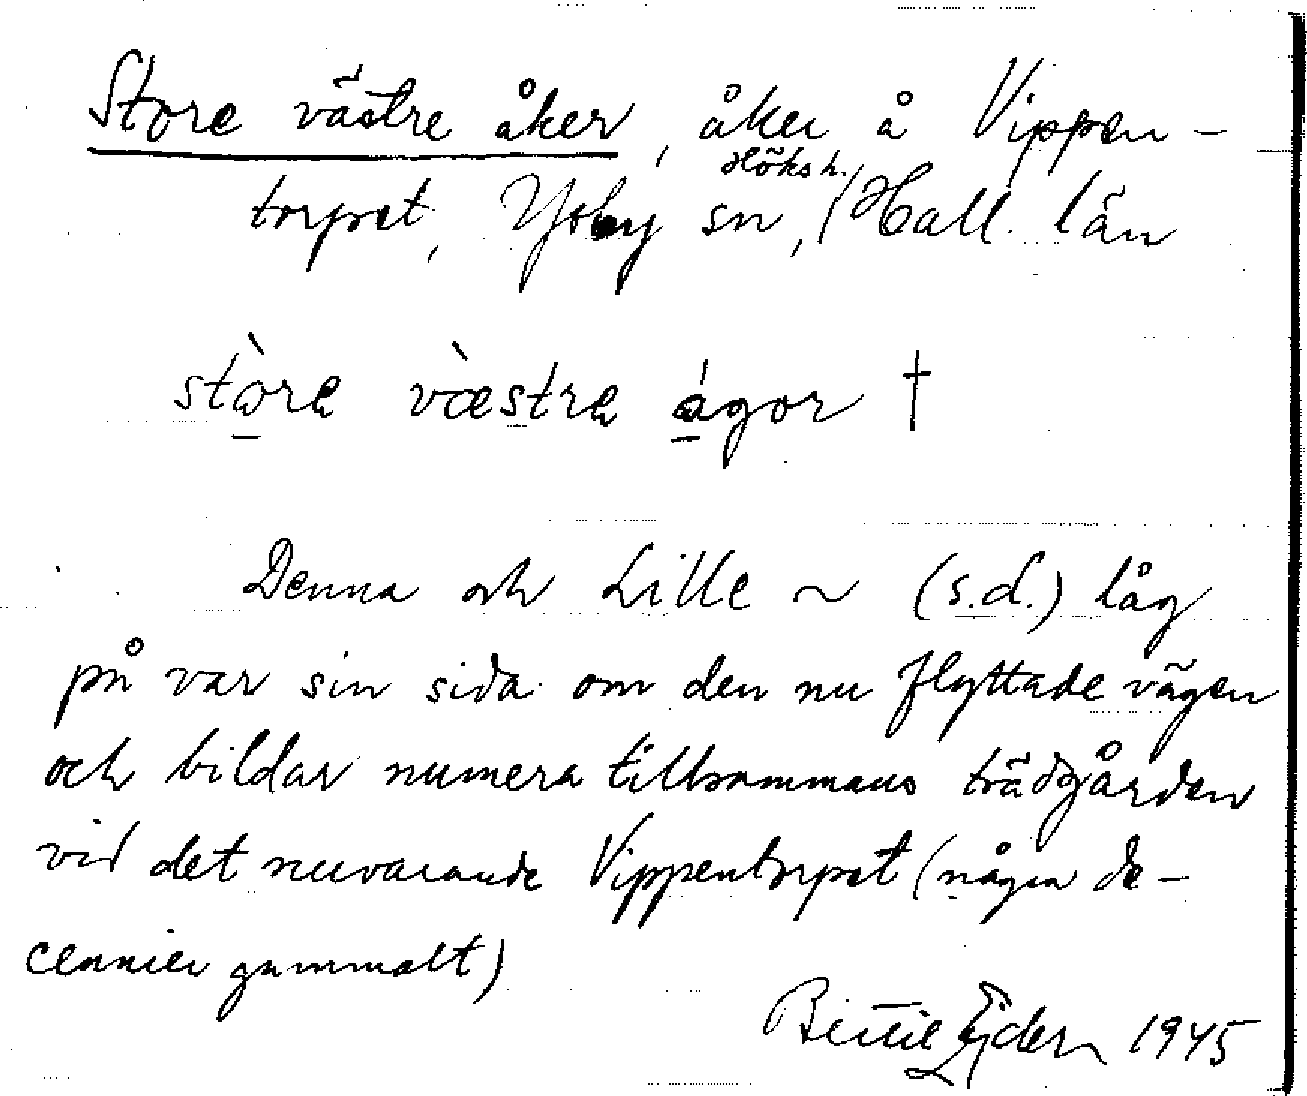 Store västre åker, åker å Vippen-
Höksh.
torpet, Ysby sn, Hall. län
stòre væ̀stre ágor †
Denna och Lille ~ (s.d.) låg
på var sin sida om den nu flyttade vägen
och bildar numera tillsammans trädgården
vid det nuvarande Vippentorpet (några de-
cennier gammalt)
Bertil Ejder 1945